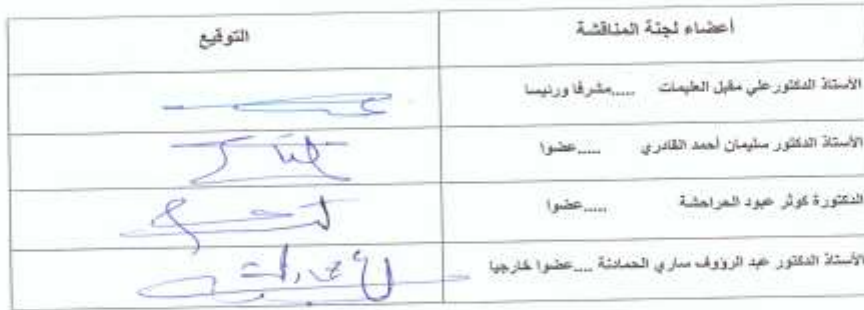 أعضاء لجنة المناقشة التوقيع
الأستاذ الدكتور علي مقبل العليمات .....مشرفا ورئيسا
الأستاذ الدكتور سليمان أحمد القادري .....عضوا
الدكتورة كوثر عبود الحراحشة .....عضوا
الأستاذ الدكتور عبد الرؤوف ساري الحمادنة ....عضوا خارجيا